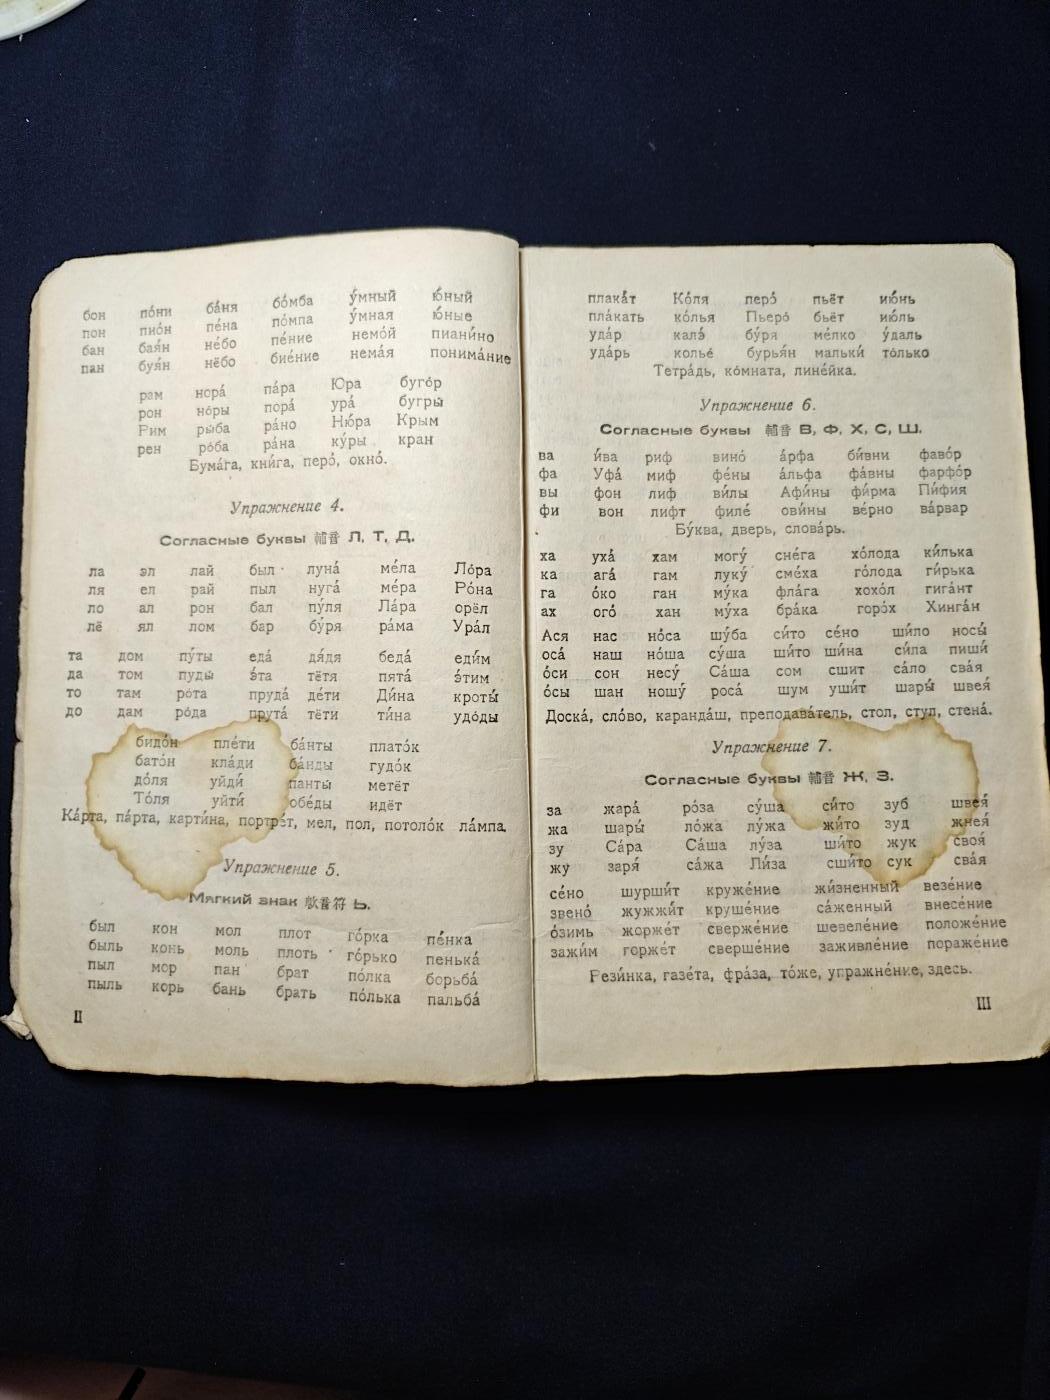 бон по́ни ба́ня бо́мба у́мный ю́ный
пон пио́н пе́на по́мпа у́мная ю́ные
бан бая́н не́бо пе́ние немо́й пиани́но
пан буя́н нёбо бие́ние нема́я понима́ние
рам нора́ па́ра Юра буго́р
рон но́ры пора́ ура́ бугры́
Рим ры́ба ра́но Ню́ра Крым
рен ро́ба ра́на ку́ры кран
Бума́га, кни́га, перо́, окно́.
Упражнение 4.
Согласные буквы 輔音 Л, Т, Д.
ла эл лай был луна́ ме́ла Ло́ра
ля ел рай пыл нуга́ ме́ра Ро́на
ло ал рон бал пу́ля Ла́ра орёл
лё ял лом бар бу́ря ра́ма Ура́л
та дом пу́ты еда́ дя́дя беда́ еди́м
да том пуды́ э́та тётя пята́ э́тим
то там ро́та пруда́ де́ти Ди́на кроты́
до дам ро́да прута́ тёти ти́на удо́ды
бидо́н пле́ти ба́нты плато́к
бато́н кла́ди ба́нды гудо́к
до́ля уйди́ панты́ метёт
То́ля уйти́ обе́ды идёт
Ка́рта, па́рта, карти́на, портре́т, мел, пол, потоло́к ла́мпа.
Упражнение 5.
Мягкий знак 軟音符 Ь.
был кон мол плот го́рка пе́нка
быль конь моль плоть го́рько пенька́
пыл мор пан брат по́лка борьба́
пыль корь бань брать по́лька пальба́
II
плака́т Ко́ля перо́ пьёт ию́нь
пла́кать ко́лья Пьеро́ бьёт ию́ль
уда́р калэ́ бу́ря ме́лко у́даль
уда́рь колье́ бурья́н мальки́ то́лько
Тетра́дь, ко́мната, лине́йка.
Упражнение 6.
Согласные буквы 輔音 В, Ф, Х, С, Ш.
ва и́ва риф вино́ а́рфа би́вни фаво́р
фа Уфа́ миф фе́ны а́льфа фа́вны фарфо́р
вы фон лиф ви́лы Афи́ны фи́рма Пи́фия
фи вон лифт филе́ ови́ны ве́рно ва́рвар
Бу́ква, дверь, слова́рь.
ха уха́ хам могу́ сне́га хо́лода ки́лька
ка ага́ гам луку́ сме́ха го́лода ги́рька
га о́ко ган му́ка фла́га хохо́л гига́нт
ах ого́ хан му́ха бра́ка горо́х Хинга́н
Ася нас но́са шу́ба си́то се́но ши́ло носы́
оса́ наш но́ша су́ша ши́то ши́на си́ла пиши́
о́си сон несу́ Са́ша сом сшит са́ло свая́
о́сы шан ношу́ роса́ шум уши́т шары́ швея́
Доска́, сло́во, каранда́ш, преподава́тель, стол, стул, стена́.
Упражнение 7.
Согласные буквы 輔音 Ж, З.
за жара́ ро́за су́ша си́то зуб швея́
жа шары́ ло́жа лу́жа жи́то зуд жнея́
зу Са́ра Са́ша лу́за ши́то жук своя́
жу заря́ са́жа Ли́за сши́то сук сва́я
се́но шурши́т круже́ние жи́зненный везе́ние
звено́ жужжи́т круше́ние са́женный внесе́ние
о́зимь жорже́т сверже́ние шевеле́ние положе́ние
зажи́м горже́т сверше́ние заживле́ние пораже́ние
Рези́нка, газе́та, фра́за, то́же, упражне́ние, здесь.
III